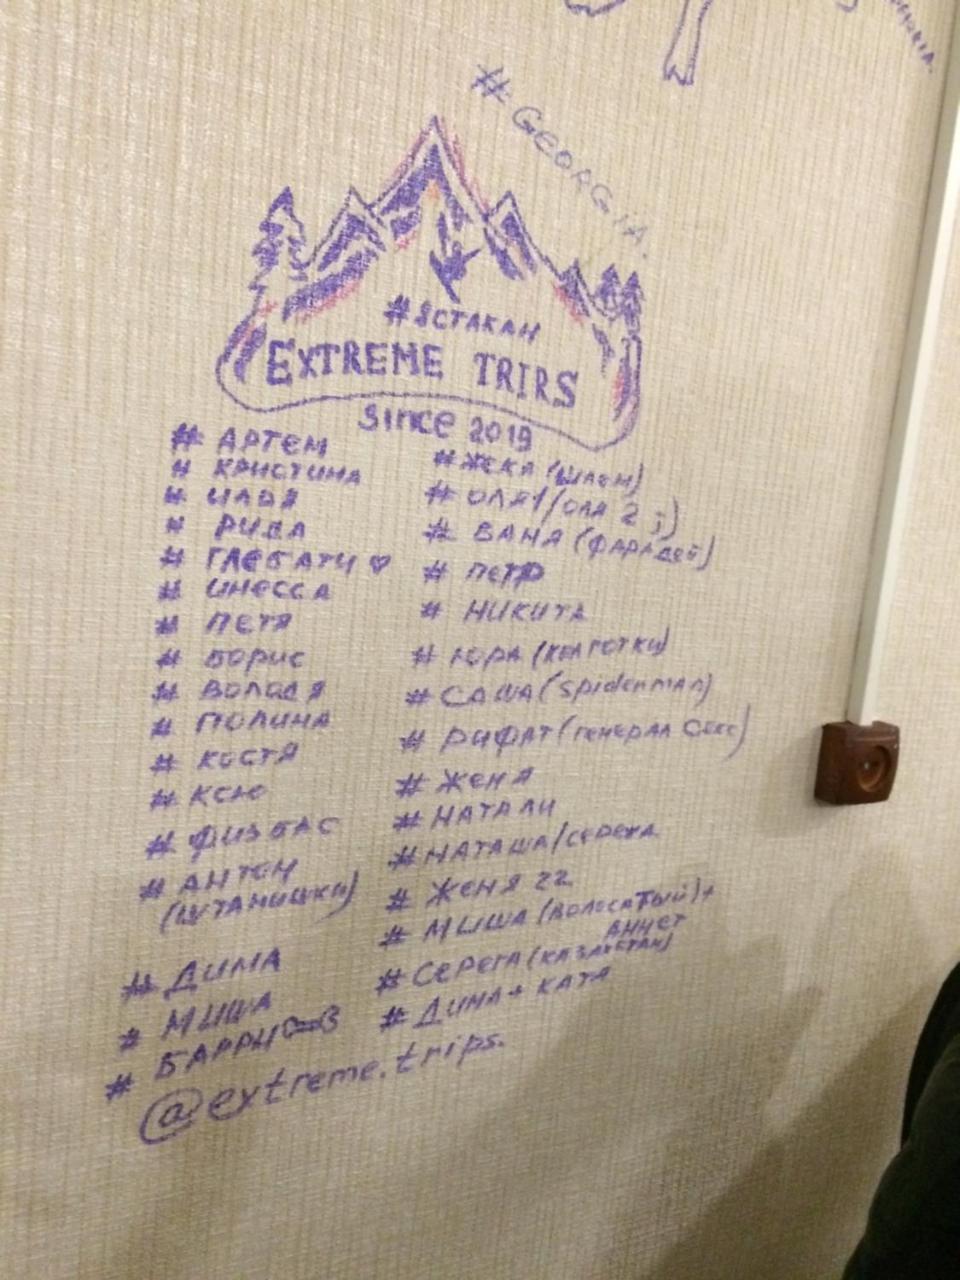 # GEORGIA.
#ЯСТАКАН
EXTREME TRIRS
since 2019
# АРТЕМ
# КРИСТИНА
# ИЛЬЯ
# РИДА
# ГЛЕБАТИ ♡
# ИНЕССА
# ПЕТЯ
# БОРИС
# ВОЛОДЯ
# ПОЛИНА
# КОСТЯ
# КСЮ
# ФИЗБАС
# АНТОН
(ШТАНИШКИ)
# ДИМА
# МИША
# БАРРИ
# ЖЕКА (ШЛЕМ)
# ОЛЯ1/ОЛЯ 2 ;)
# ВАНЯ (ФАРАДЕЙ)
# ПЕТР
# НИКИТА
# ЮРА (КОЛГОТКИ)
# САША (spiderman)
# РИФАТ (ГЕНЕРАЛ СЕКС)
# ЖЕНЯ
# НАТАЛИ
# НАТАША/СЕРЕГА
# ЖЕНЯ 22
# МИША (ВОЛОСАТЫЙ)+
АННЕТ
# СЕРЕГА (КАЗАХСТАН)
# ДИМА + КАТА
@extreme.trips.